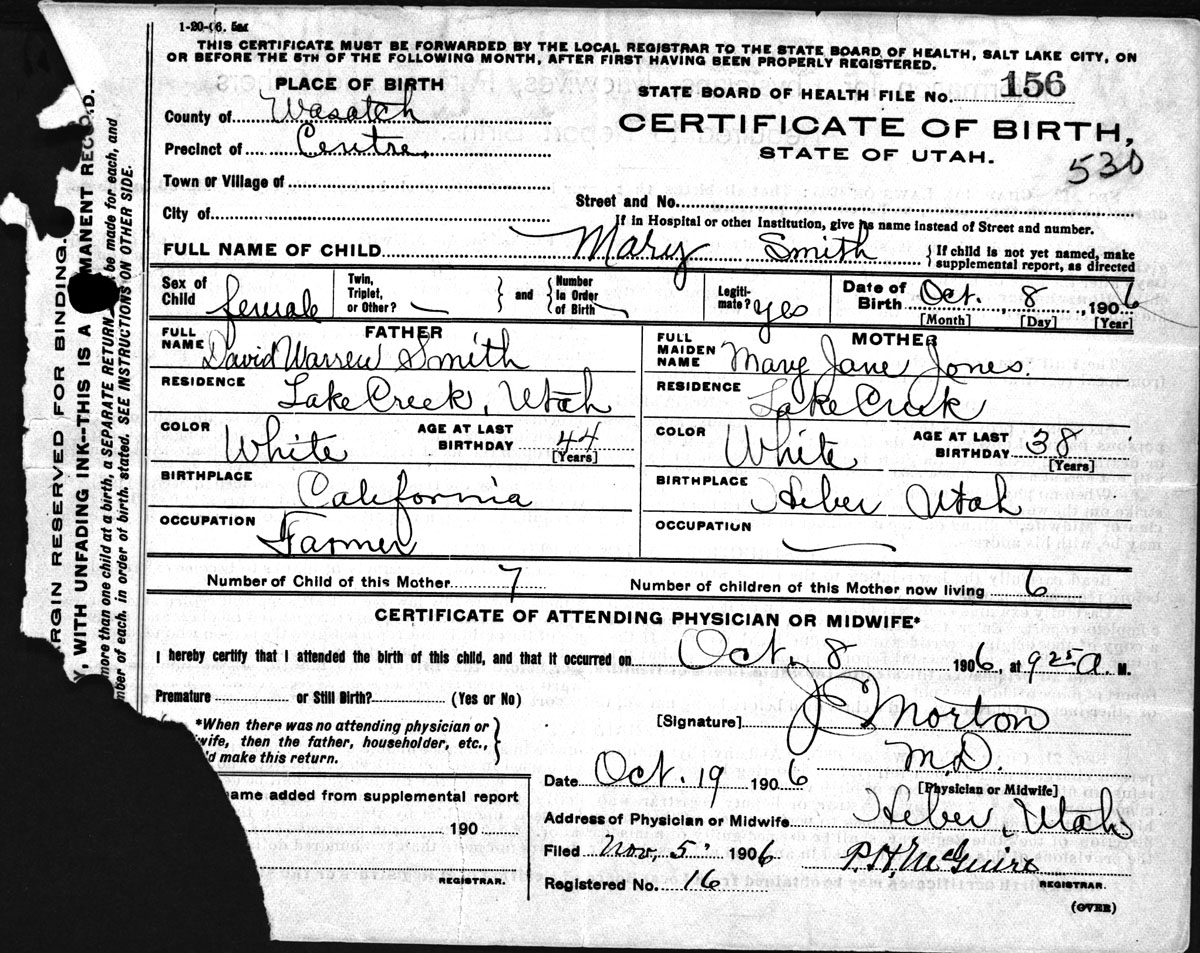 1-20-06. 5m
THIS CERTIFICATE MUST BE FORWARDED BY THE LOCAL REGISTRAR TO THE STATE BOARD OF HEALTH, SALT LAKE CITY, ON
OR BEFORE THE 5TH OF THE FOLLOWING MONTH, AFTER FIRST HAVING BEEN PROPERLY REGISTERED.
PLACE OF BIRTH
STATE BOARD OF HEALTH FILE NO. 156
County of Wasatch
CERTIFICATE OF BIRTH,
Precinct of Centre.
STATE OF UTAH.
530
Town or Village of
Street and No.
City of
If in Hospital or other Institution, give its name instead of Street and number.
FULL NAME OF CHILD Mary Smith {If child is not yet named, make
supplemental report, as directed
Sex of Child female
Twin, Triplet, or Other? — } and { Number in Order of Birth —
Legitimate? yes
Date of Birth Oct. 8, 1906
[Month] [Day] [Year]
FATHER
FULL NAME David Warren Smith
RESIDENCE Lake Creek, Utah
COLOR White AGE AT LAST BIRTHDAY 44
[Years]
BIRTHPLACE California
OCCUPATION Farmer
MOTHER
FULL MAIDEN NAME Mary Jane Jones.
RESIDENCE Lake Creek
COLOR White AGE AT LAST BIRTHDAY 38
[Years]
BIRTHPLACE Heber Utah
OCCUPATION —
Number of Child of this Mother 7 Number of children of this Mother now living 6
CERTIFICATE OF ATTENDING PHYSICIAN OR MIDWIFE*
I hereby certify that I attended the birth of this child, and that it occurred on Oct. 8 1906, at 9 25 A. M.
Premature or Still Birth? (Yes or No)
[Signature] Morton
M.D.
[Physician or Midwife]
*When there was no attending physician or
wife, then the father, householder, etc., }
make this return.
Date Oct. 19 1906
Address of Physician or Midwife Heber, Utah
Filed Nov. 5 1906 P.H. McGuire
Registered No. 16 REGISTRAR.
(OVER)
ame added from supplemental report
190
REGISTRAR.
ARGIN RESERVED FOR BINDING.
, WITH UNFADING INK--THIS IS A MANENT RECORD.
more than one child at a birth, a SEPARATE RETURN be made for each, and
mber of each, in order of birth, stated. SEE INSTRUCTIONS ON OTHER SIDE.